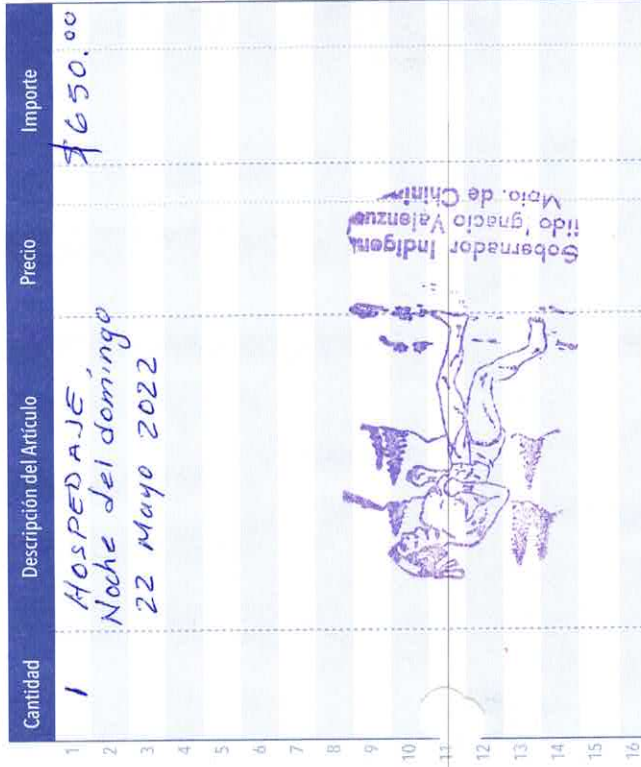 Cantidad Descripción del Artículo Precio Importe
1 1 HOSPEDAJE $650.00
2 Noche del domingo
3 22 Mayo 2022
4
5
6
7
8
9
10
11
12
13
14
15
16
Gobernador Indígen
jido Ignacio Valenzue
Mpio. de Chini